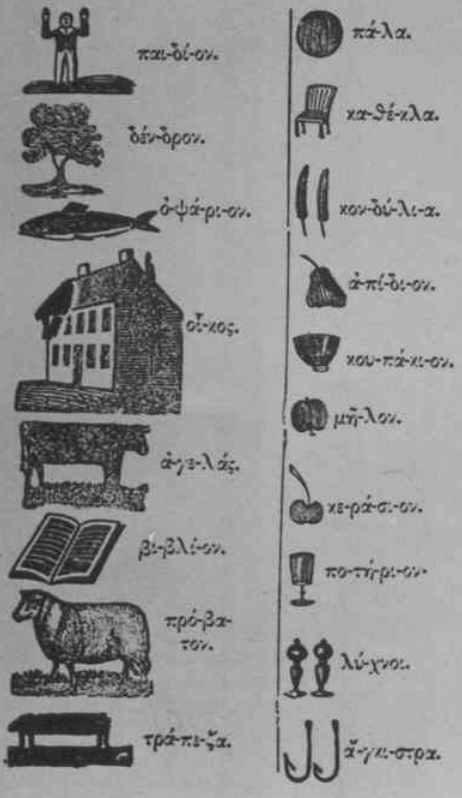 παι-δί-ον.
δέν-δρον.
ὀ-ψά-ρι-ον.
οἶ-κος.
ἀ-γε-λάς.
βι-βλί-ον.
πρό-βα-
τον.
τρά-πε-ζα.
πά-λα.
κα-θέ-κλα.
κον-δύ-λι-α.
ἀ-πί-δι-ον.
κου-πά-κι-ον.
μῆ-λον.
κε-ρά-σι-ον.
πο-τή-ρι-ον·
λύ-χνοι.
ἄ-γκι-στρα.